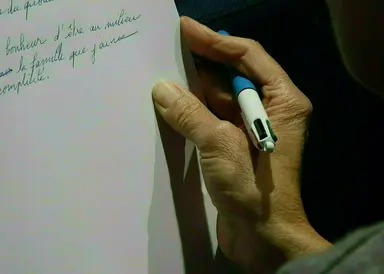 bonheur d'être au milieu
la famille que j'aime
complicité.